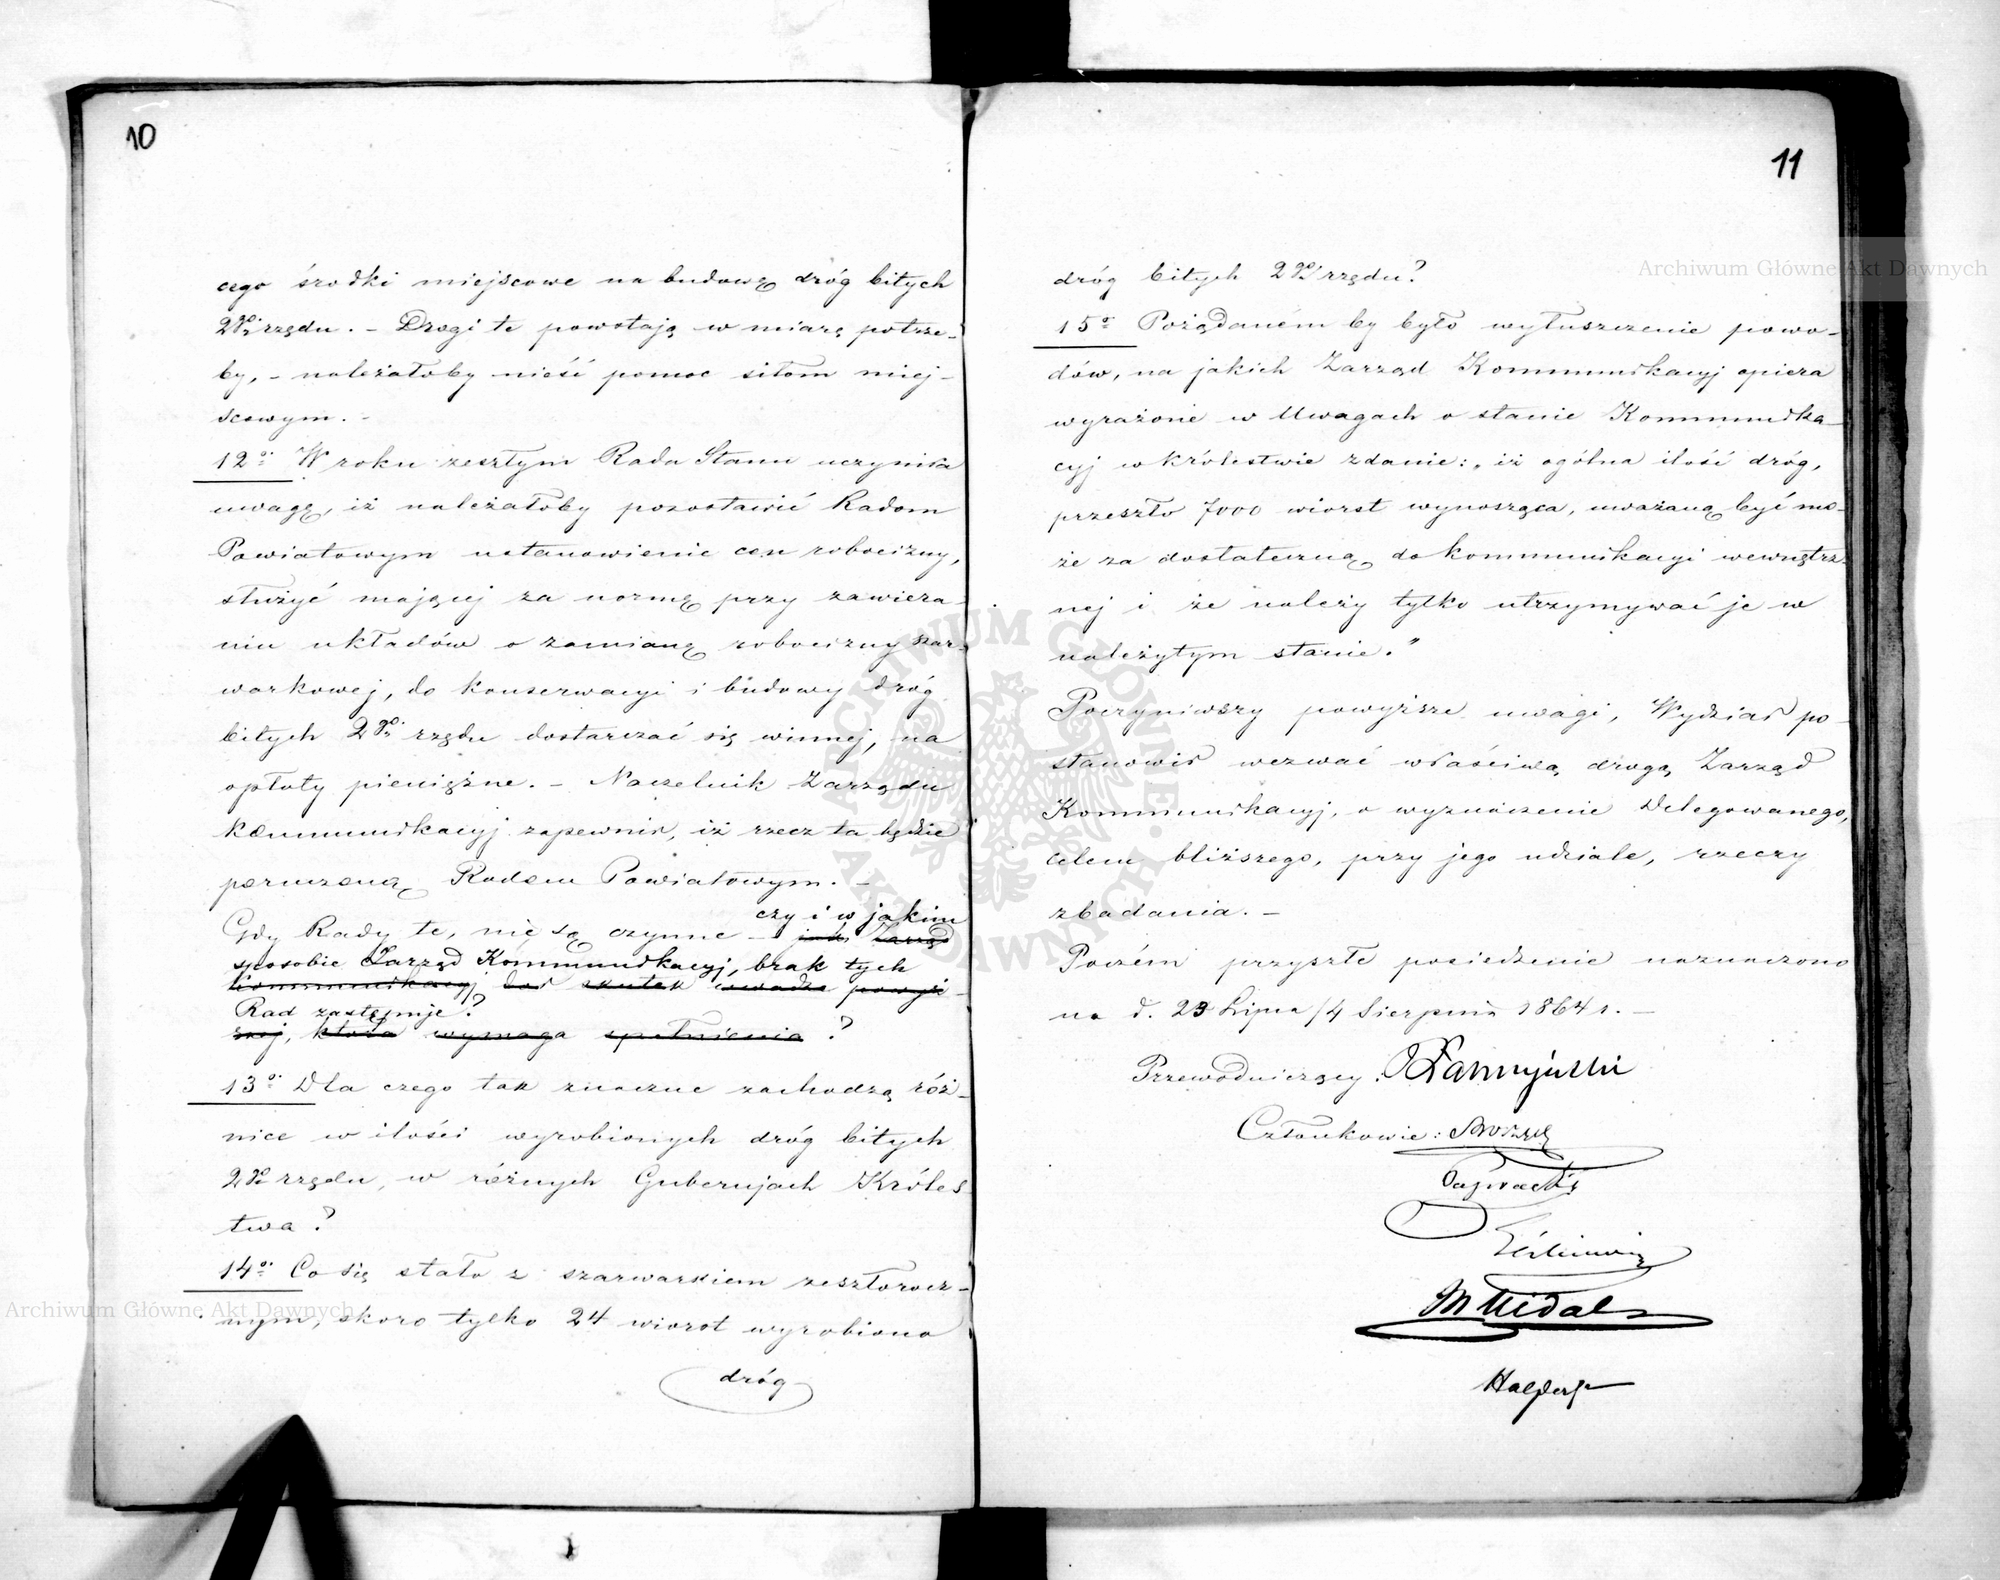 10
cego środki miejscowe na budowę dróg bitych
2go rzędu. - Drogi te powstają w miarę potrze-
by, - należałoby nieść pomoc siłom miej-
scowym. -
12o W roku zeszłym Rada Stanu uczyniła
uwagę, iż należałoby pozostawić Radom
Powiatowym ustanowienie cen robocizny,
służyć mającej za normę przy zawiera-
niu układów o zamianę robocizny szar-
warkowej, do konserwacyi i budowy dróg
bitych 2go rzędu dostarczać się winnej, na
opłaty pieniężne. - Naczelnik Zarządu
Kommunikacyj zapewnił, iż rzecz ta będzie
poruczoną Radom Powiatowym. -
czy i w jakim
Gdy Rady te, nie są czynne - jak Zarząd
sposobie Zarząd Kommunikacyj, brak tych
Kommunikacyj dał skutek uwadze powyż-
Rad zastępuje?
szej, która wymaga spełnienia ?
13o Dla czego tak znaczne zachodzą róż-
nice w ilości wyrobionych dróg bitych
2go rzędu, w różnych Gubernjach Króles-
twa ?
14o Co się stało z szarwarkiem zeszłorocz-
nym, skoro tylko 24 wiorst wyrobiono
dróg
11
dróg bitych 2go rzędu?
15o Pożądaném by było wyłuszczenie powo-
dów, na jakich Zarząd Kommunikacyj opiera
wyrażone w Uwagach o stanie Kommunika-
cyj w Królestwie zdanie: „iż ogólna ilość dróg,
przeszło 7000 wiorst wynosząca, uważaną być mo-
że za dostateczną do kommunikacyi wewnętrz-
nej i że należy tylko utrzymywać je w
należytym stanie."
Poczyniwszy powyższe uwagi, Wydział po-
stanowił wezwać właściwą drogą Zarząd
Kommunikacyj, o wyznaczenie Delegowanego,
celem bliższego, przy jego udziale, rzeczy
zbadania. -
Poczém przyszłe posiedzenie naznaczono
na d. 23 Lipca/4 Sierpnia 1864 r. -
Przewodniczący:
Członkowie:
Archiwum Główne Akt Dawnych
Archiwum Główne Akt Dawnych
ARCHIWUM GŁÓWNE AKT DAWNYCH